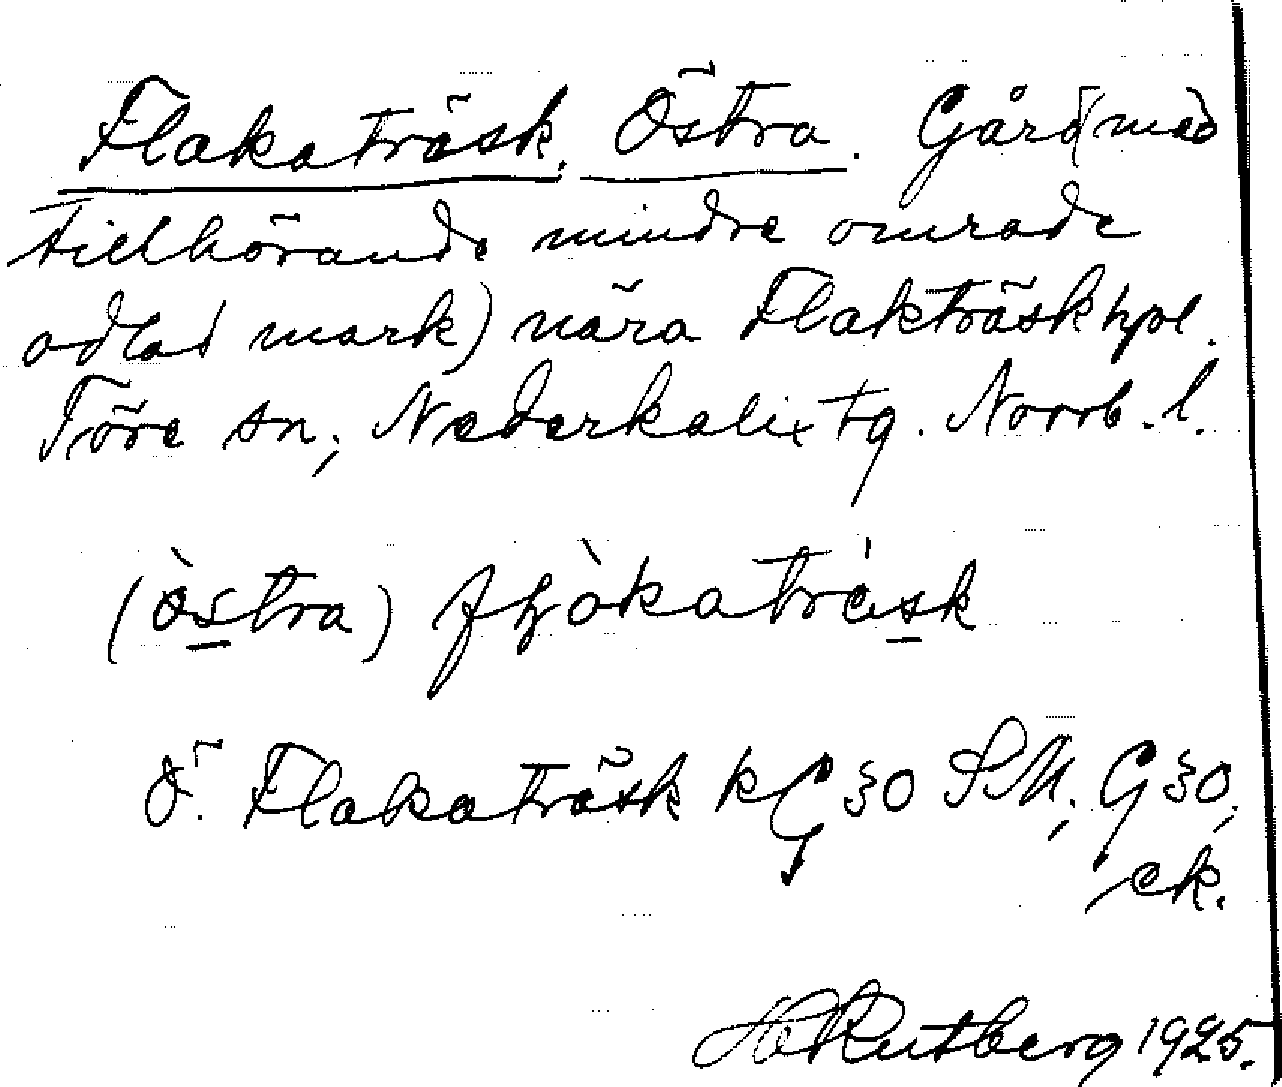 Flakaträsk, Östra. Gård (med
tillhörande mindre område
odlad mark) nära Flakträsk hpl.
Töre sn, Nederkalix tg. Norrb. l.
(östra) fḷòkatræsk
Ö. Flakaträsk kG 30 SM, G 30,
ek.
H Rutberg 1925.